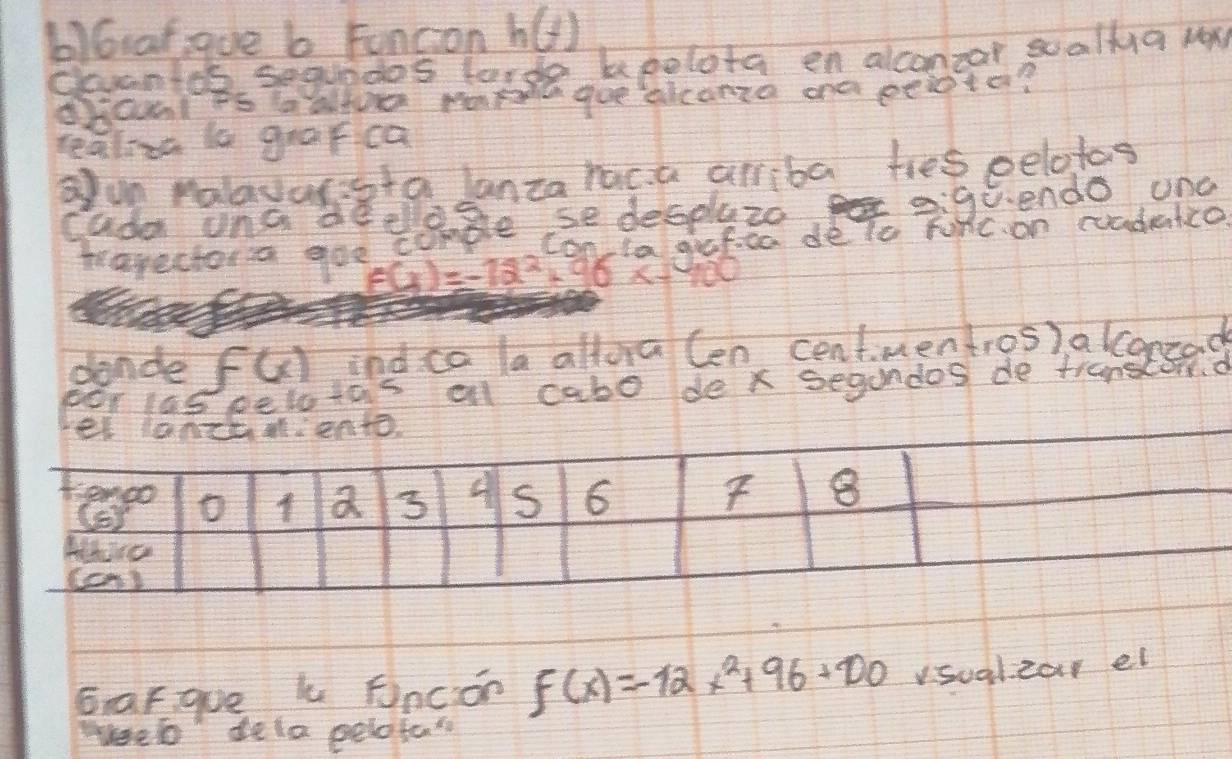 b) Grafique la Función h(t)
c) cuantos segundos tarda la pelota en alcanzar su altura
d) ¿cual es la altura que alcanza una pelota?
realiza la grafica
3) un Malavarista lanza hacia arriba tres pelotas
cada una de ellas se desplaza siguiendo una
trayectoria que cumple con la grafica de la función cuadratica
F(x)=-12²+96x+100
donde f(x) indica la altura (en centimentros) alcanzad
por las pelotas al cabo de x segundos de
el lanzamiento.
tiempo (s) 0 1 2 3 4 5 6 7 8
Altura (cm)
Grafique la función f(x)=-12x²+96+100 visualizar el
"vuelo de la pelota"